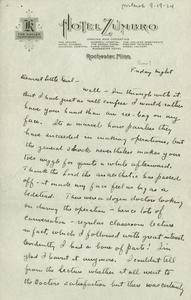 HOTEL ZUMBRO
Rochester, Minn.
Friday night
Dearest little Girl -
Well - I'm through with it
but I had just as well confess I would rather
have your hand than an ice-bag on my
face. It's a marvel how painless they
have succeeded in making operations, but
the general shock nevertheless makes you
too soggy for quite a while afterward.
Thank the Lord the anaesthetic has passed
off - it made my face feel as big as a
bedstead. There were a dozen doctors looking
on during the operation - hence lots of
conversation - regular classroom lecture
in fact, which I followed with great interest.
Evidently I had a bone of parts! I'm
glad I know it anyway. I couldn't tell
from the lecture whether it all went to
the Doctors satisfaction but there was certainly